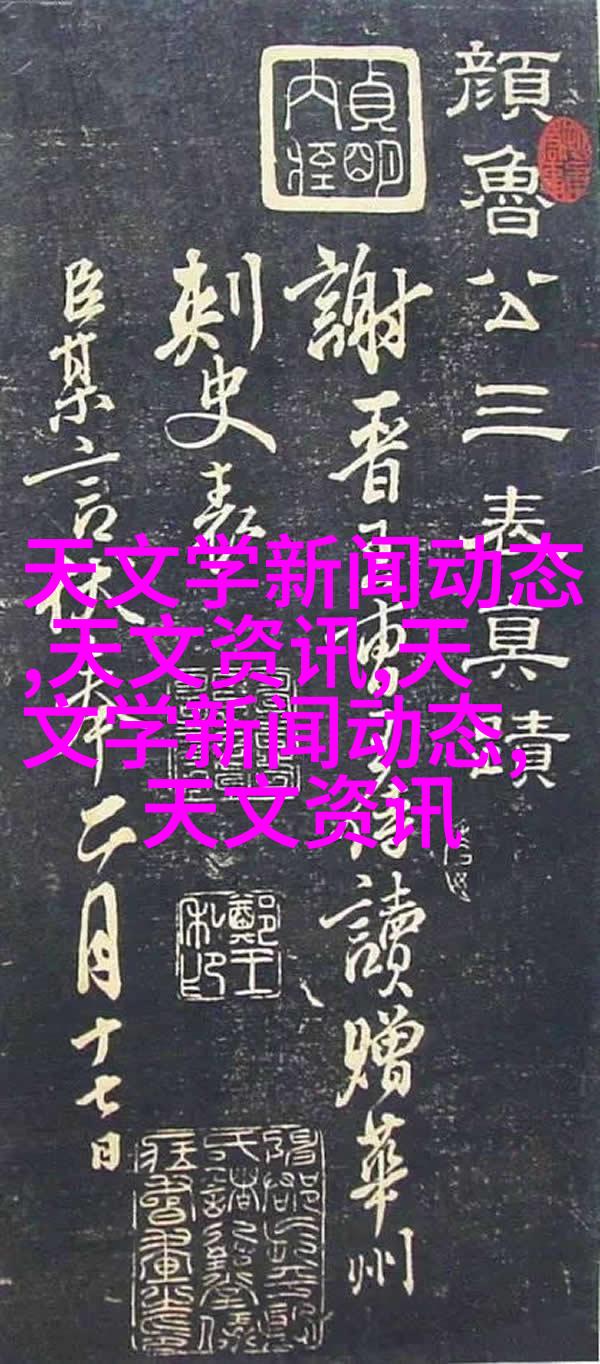 顔魯公三表真蹟
謝晉王侍讀贈華州
刺史表
臣某言伏奉二月十七日
鄭王私印
天文学新闻动态
,天文资讯,天
文学新闻动态,
天文资讯